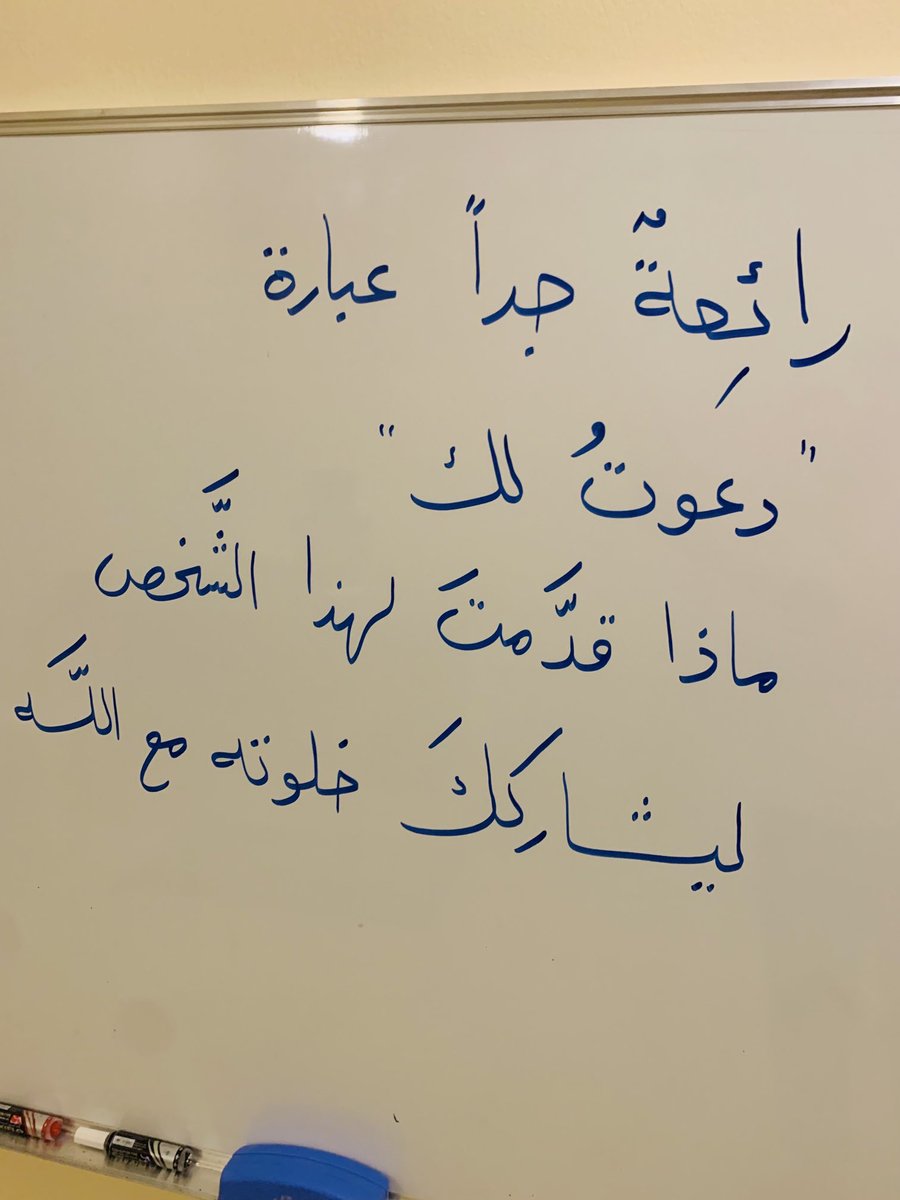 رائِعةٌ جداً عبارة
"دعوتُ لك"
ماذا قدَّمتَ لهذا الشَّخص
ليشارِككَ خلوته مع اللَّه